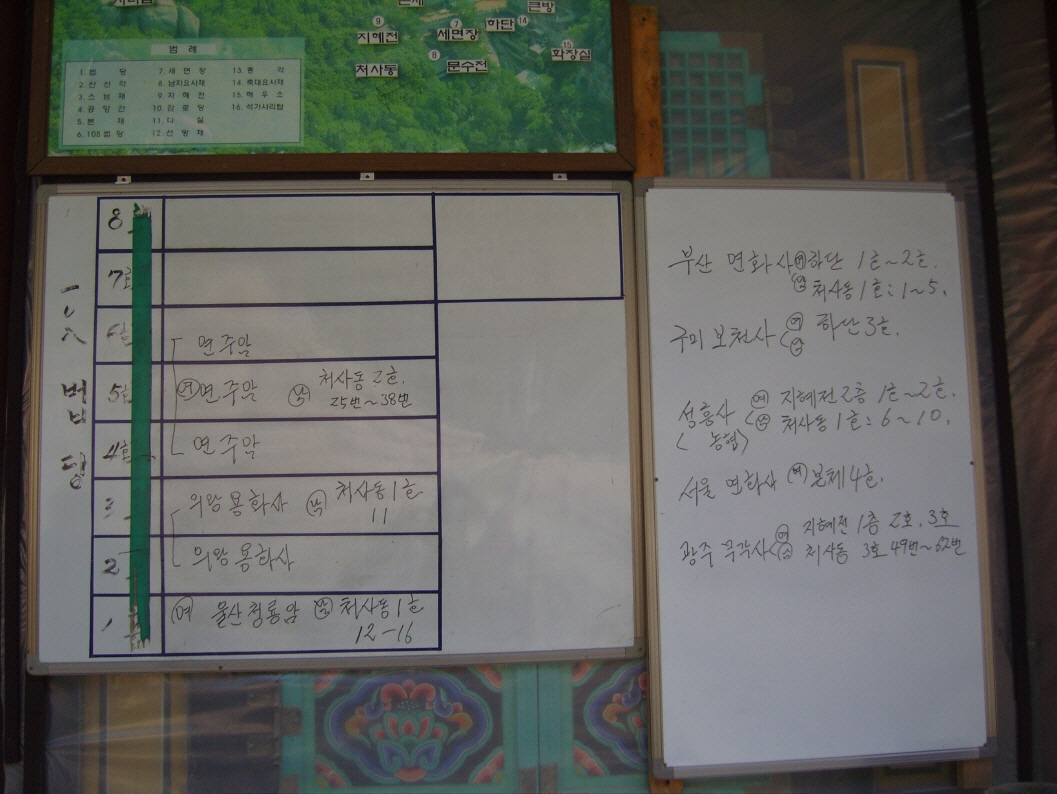 큰방
⑨
지혜전
⑦
세면장
하단
⑭
⑧
처사동
문수전
⑮
화장실
범 례
1. 법 당 7. 세 면 장 13. 종 각
2. 산 신 각 8. 남자요사채 14. 축대요사채
3. 스 님 채 9. 지 혜 전 15. 해 우 소
4. 공 양 간 10. 감 로 당 16. 석가사리탑
5. 본 채 11. 다 실
6. 108 법 당 12. 선 방 채
8
7호
6호 연주암
5호 ㉠ 연주암 처사동 2호.
25번~38번
4호 연주암
3 의왕용화사 처사동 1호
11
2 의왕 용화사
1 여 울산청룡암 처사동 1호
12-16
부산 연화사 여 하단 1호~2호.
남 처사동 1호: 1~5.
구미 보천사 여 하단 3호.
남
성흥사 여 지혜전 2층 1호~2호.
남 처사동 1호: 6~10.
<농협>
서울 연화사 여 본체 4호.
광주 무각사 여 지혜전 1층 2호. 3호
남 처사동 3호 49번~62번